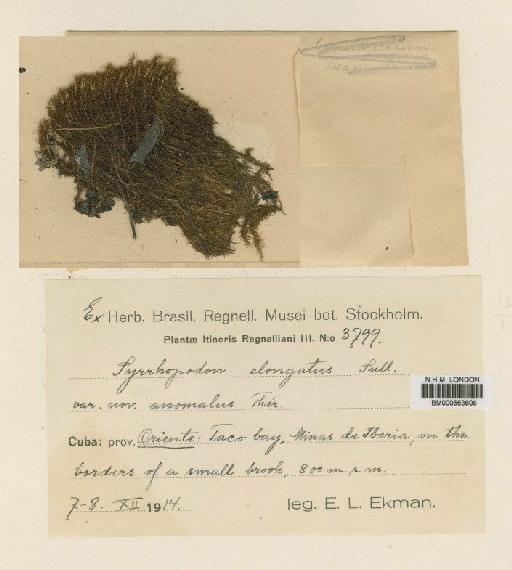 Ex Herb. Brasil. Regnell. Musei bot. Stockholm.
Plantæ Itineris Regnelliani III. N:o 3799.
Syrrhopodon elongatus Sull.
var. nov. anomalus Thér.
N.H.M. LONDON
BM000663606
Cuba: prov. Oriente: Taco bay, Minas de Iberia, on the
borders of a small brook, 800 m. s. m.
7-8. XII 1914.
leg. E. L. Ekman.